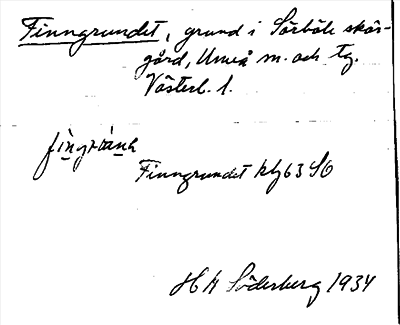 Finngrundet, grund i Sörböle skär-
gård, Umeå m. och tg.
Västerb. l.
Finngrundet kbl 63 SO
H A Söderberg 1934